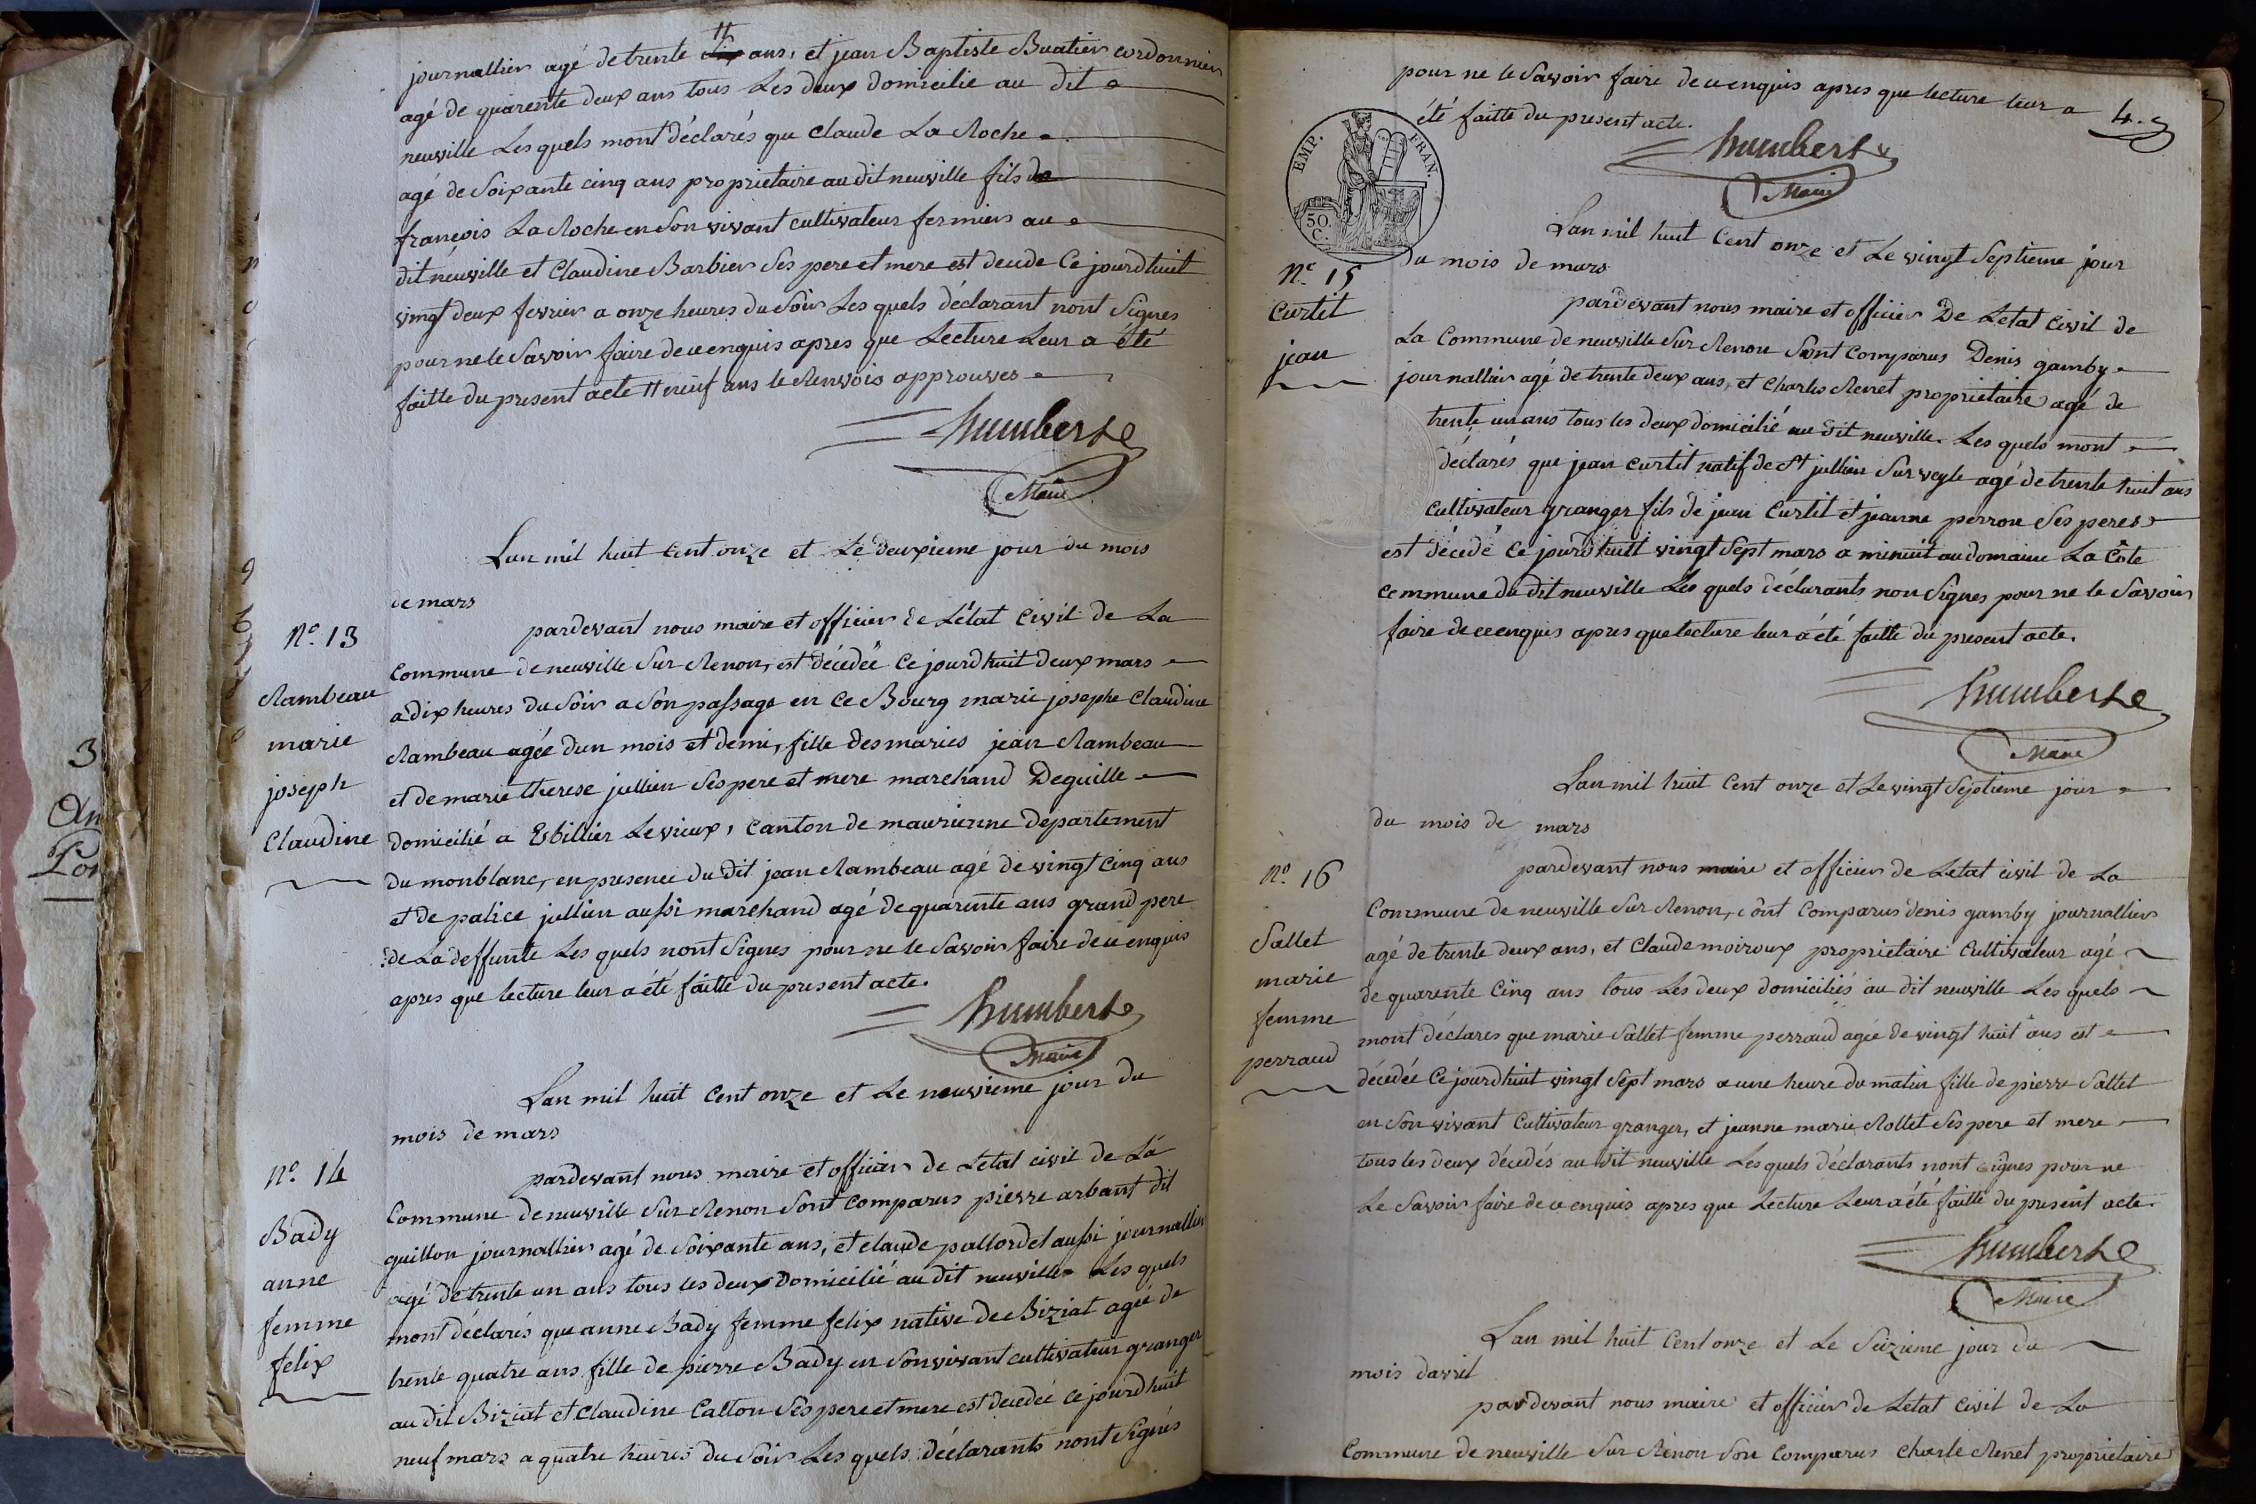 journallier agé de trente six ans, et jean Baptiste Buatier cordonnier
agé de quarente deux ans tous Les deux domicilié au dit
neuville Les quels mont déclarés que claude La Roche
agé de Soixante cinq ans proprietaire au dit neuville fils de
françois La Roche en Son vivant cultivateur fermier au
dit neuville et Claudine Barbier Ses pere et mere est decede Ce jourdhuit
vingt deux fevrier a onze heures du Soir Les quels déclarant nont Signes
pour ne le Savoir faire de ce enquis apres que Lecture Leur a été
faitte du present acte # neuf ans le Renvois approuves
humbert
Maire
Lan mil huit Cent onze et Le deuxieme jour du mois
de mars
N.o 13
Rambeau
marie
joseph
Claudine
pardevant nous maire et officier de L'état Civil de La
Commune de neuville Sur Renon, est décédée Ce jourdhuit deux mars
a dix heures du Soir a Son passage en Ce Bourg marie josephe Claudine
Rambeau agée dun mois et demi, fille des mariés jean Rambeau
et de marie therese jullien Ses pere et mere marchand Deguille
domicilié a Esbillier Le vieux, Canton de maurienne departement
du monblanc, en presence du dit jean Rambeau agé de vingt Cinq ans
et de palice jullien aussi marchand agé de quarente ans grand pere
de La deffunte Les quels nont Signes pour ne le Savoir faire de ce enquis
apres que lecture leur a été faitte du present acte.
humbert
Maire
Lan mil huit Cent onze et Le neuvieme jour du
mois de mars
N.o 14
Bady
anne
femme
felix
pardevant nous maire et officier de Letat civil de La
Commune de neuville Sur Renon Sont Comparus pierre arbant dit
guillon journallier agé de Soixante ans, et claude pallordet aussi journallier
agé de trente un ans tous les deux Domicilié au dit neuville Les quels
mont déclarés que anne Bady femme felix native de Biziat agée de
trente quatre ans fille de pierre Bady en Son vivant cultivateur granger
au dit Biziat et Claudine Catton Ses pere et mere est decedée ce jourdhuit
neuf mars a quatre heures du Soir Les quels déclarants nont Signés
pour ne le Savoir faire de ce enquis apres que lecture leur a
été faitte du present acte.
4.
EMP. FRAN.
50
C.
humbert
Maire
Lan mil huit Cent onze et Le vingt Septieme jour
du mois de mars
N.o 15
Curtil
jean
pardevant nous maire et officier De Letat Civil de
La Commune de neuville Sur Renon Sont Comparus Denis gamby
journallier agé de trente deux ans, et Charles Renet proprietaire agé de
trente un ans tous les deux domicilié au dit neuville. Les quels mont
déclarés que jean Curtil natif de St jullien Sur veyle agé de trente huit ans
Cultivateur granger fils de jean Curtil et jeanne perron Ses peres
est décedé Ce jourdhuit vingt Sept mars a minuit au domaine La Côte
commune du dit neuville Les quels déclarants non Signes pour ne le Savoir
faire de ce enquis apres que lecture leur a été faitte du present acte.
humbert
Maire
Lan mil huit Cent onze et Le vingt Septieme jour
du mois de mars
N.o 16
Sallet
marie
femme
perraud
pardevant nous maire et officier de Letat civil de La
Commune de neuville Sur Renon, Sont Comparus denis gamby journallier
agé de trente deux ans, et Claude moiroux proprietaire Cultivateur agé
de quarente Cinq ans tous Les deux domiciliés au dit neuville Les quels
mont déclares que marie Sallet femme perraud agée de vingt huit ans est
décédée Ce jourdhuit vingt Sept mars a une heure du matin fille de pierre Sallet
en Son vivant Cultivateur granger, et jeanne marie Rollet Ses pere et mere
tous les deux décedés au dit neuville Les quels déclarants nont Signes pour ne
Le Savoir faire de ce enquis apres que Lecture Leur a été faitte du present acte.
humbert
Maire
Lan mil huit Cent onze et Le Seizieme jour du
mois davril
pardevant nous maire et officier de Letat Civil de La
Commune de neuville Sur Renon Son Comparus Charle Renet proprietaire